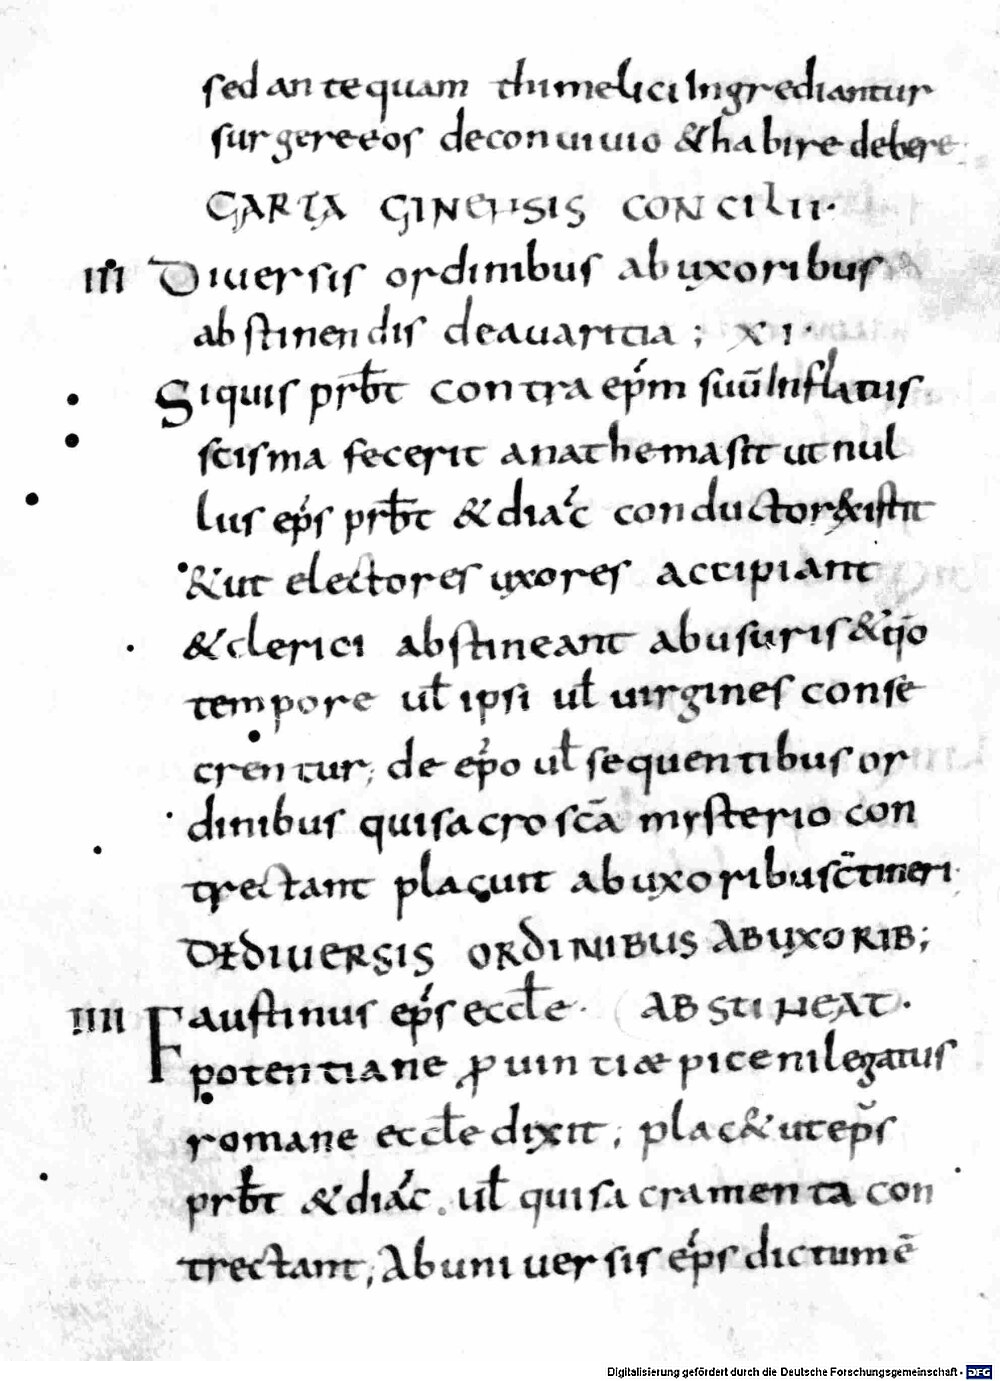 sed antequam thimelici Ingrediantur
surgere eos deconuiuio &habire debere
CARTAGINENSIS CONCILII·
III Diuersis ordinibus abuxoribus
abstinendis deauaritia ; XI·
Siquis prƀt contra ep̄m suū Inflatus
scisma fecerit anathemasit utnul
lus ep̄s prƀt &diac̄ conductor&istit
&ut electores uxores accipiant
&clerici abstineant abusuris &
tempore uł ipsi uł uirgines conse
crentur; de ep̄o uł sequentibus or
dinibus quisacro scā mysterio con
trectant placuit abuxoribus c̄tineri
DE DIUERSIS ORDINIBUS ABUXORIB;
IIII Faustinus ep̄s eccłe· ABSTINEAT·
potentiane ꝓuintiæ piceni legatus
romane eccłe dixit; plac& utep̄s
prƀt &diac̄. uł quisacramenta con
trectant; Abuniuersis ep̄s dictumē
Digitalisierung gefördert durch die Deutsche Forschungsgemeinschaft · DFG